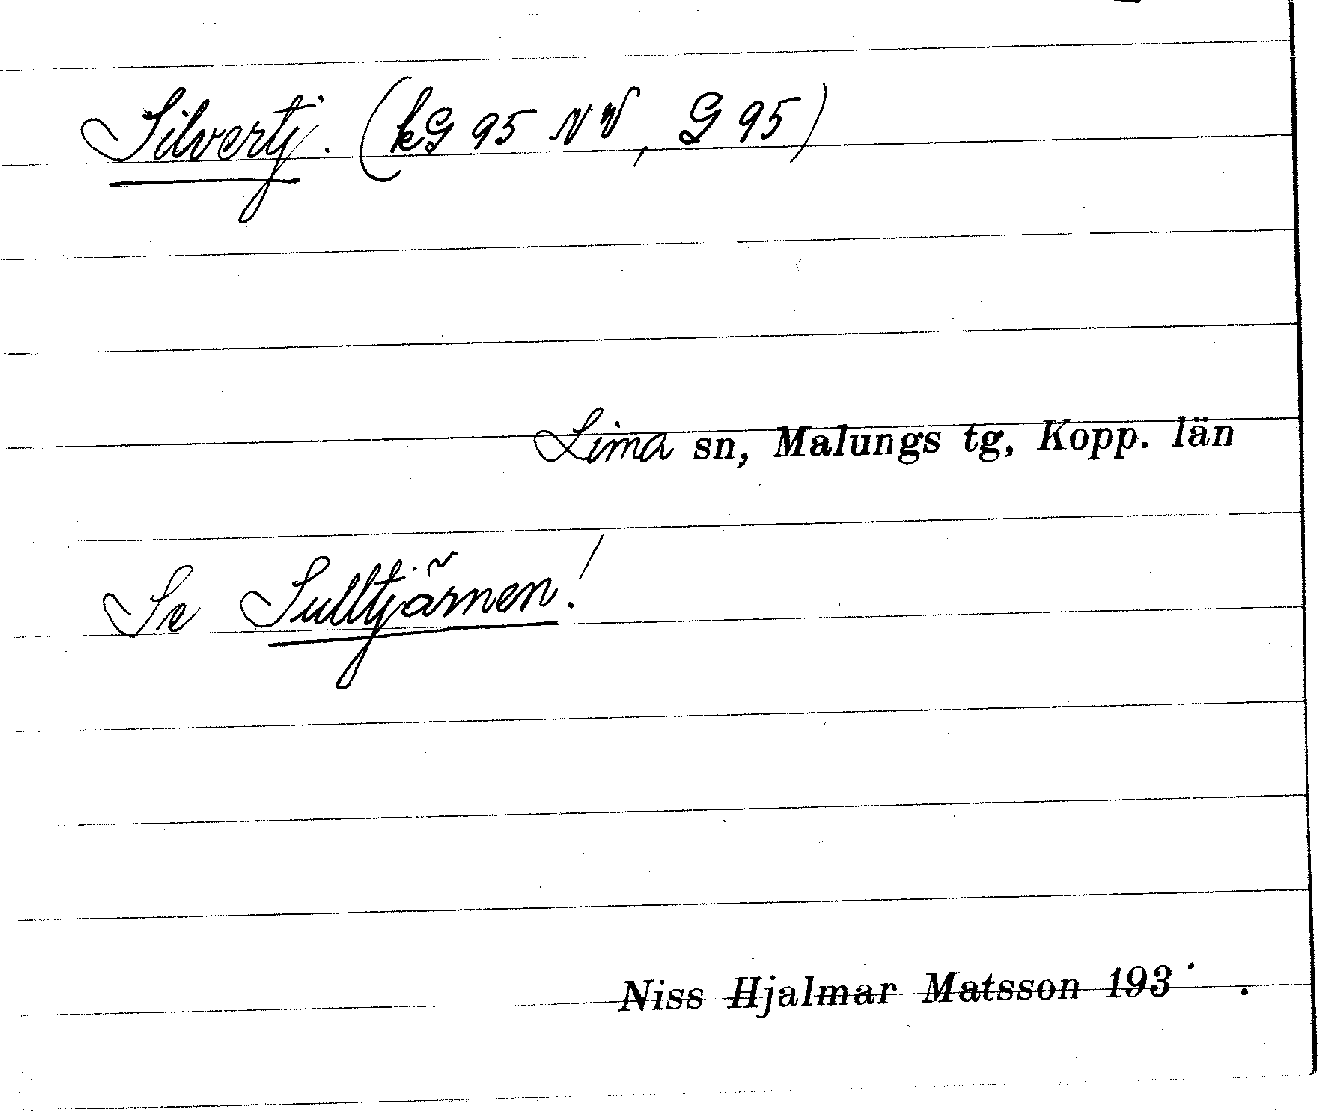 Silvertj. (kG 95 NV, G 95)
Lima sn, Malungs tg, Kopp. län
Se Sulltjärnen!
Niss Hjalmar Matsson 193 .